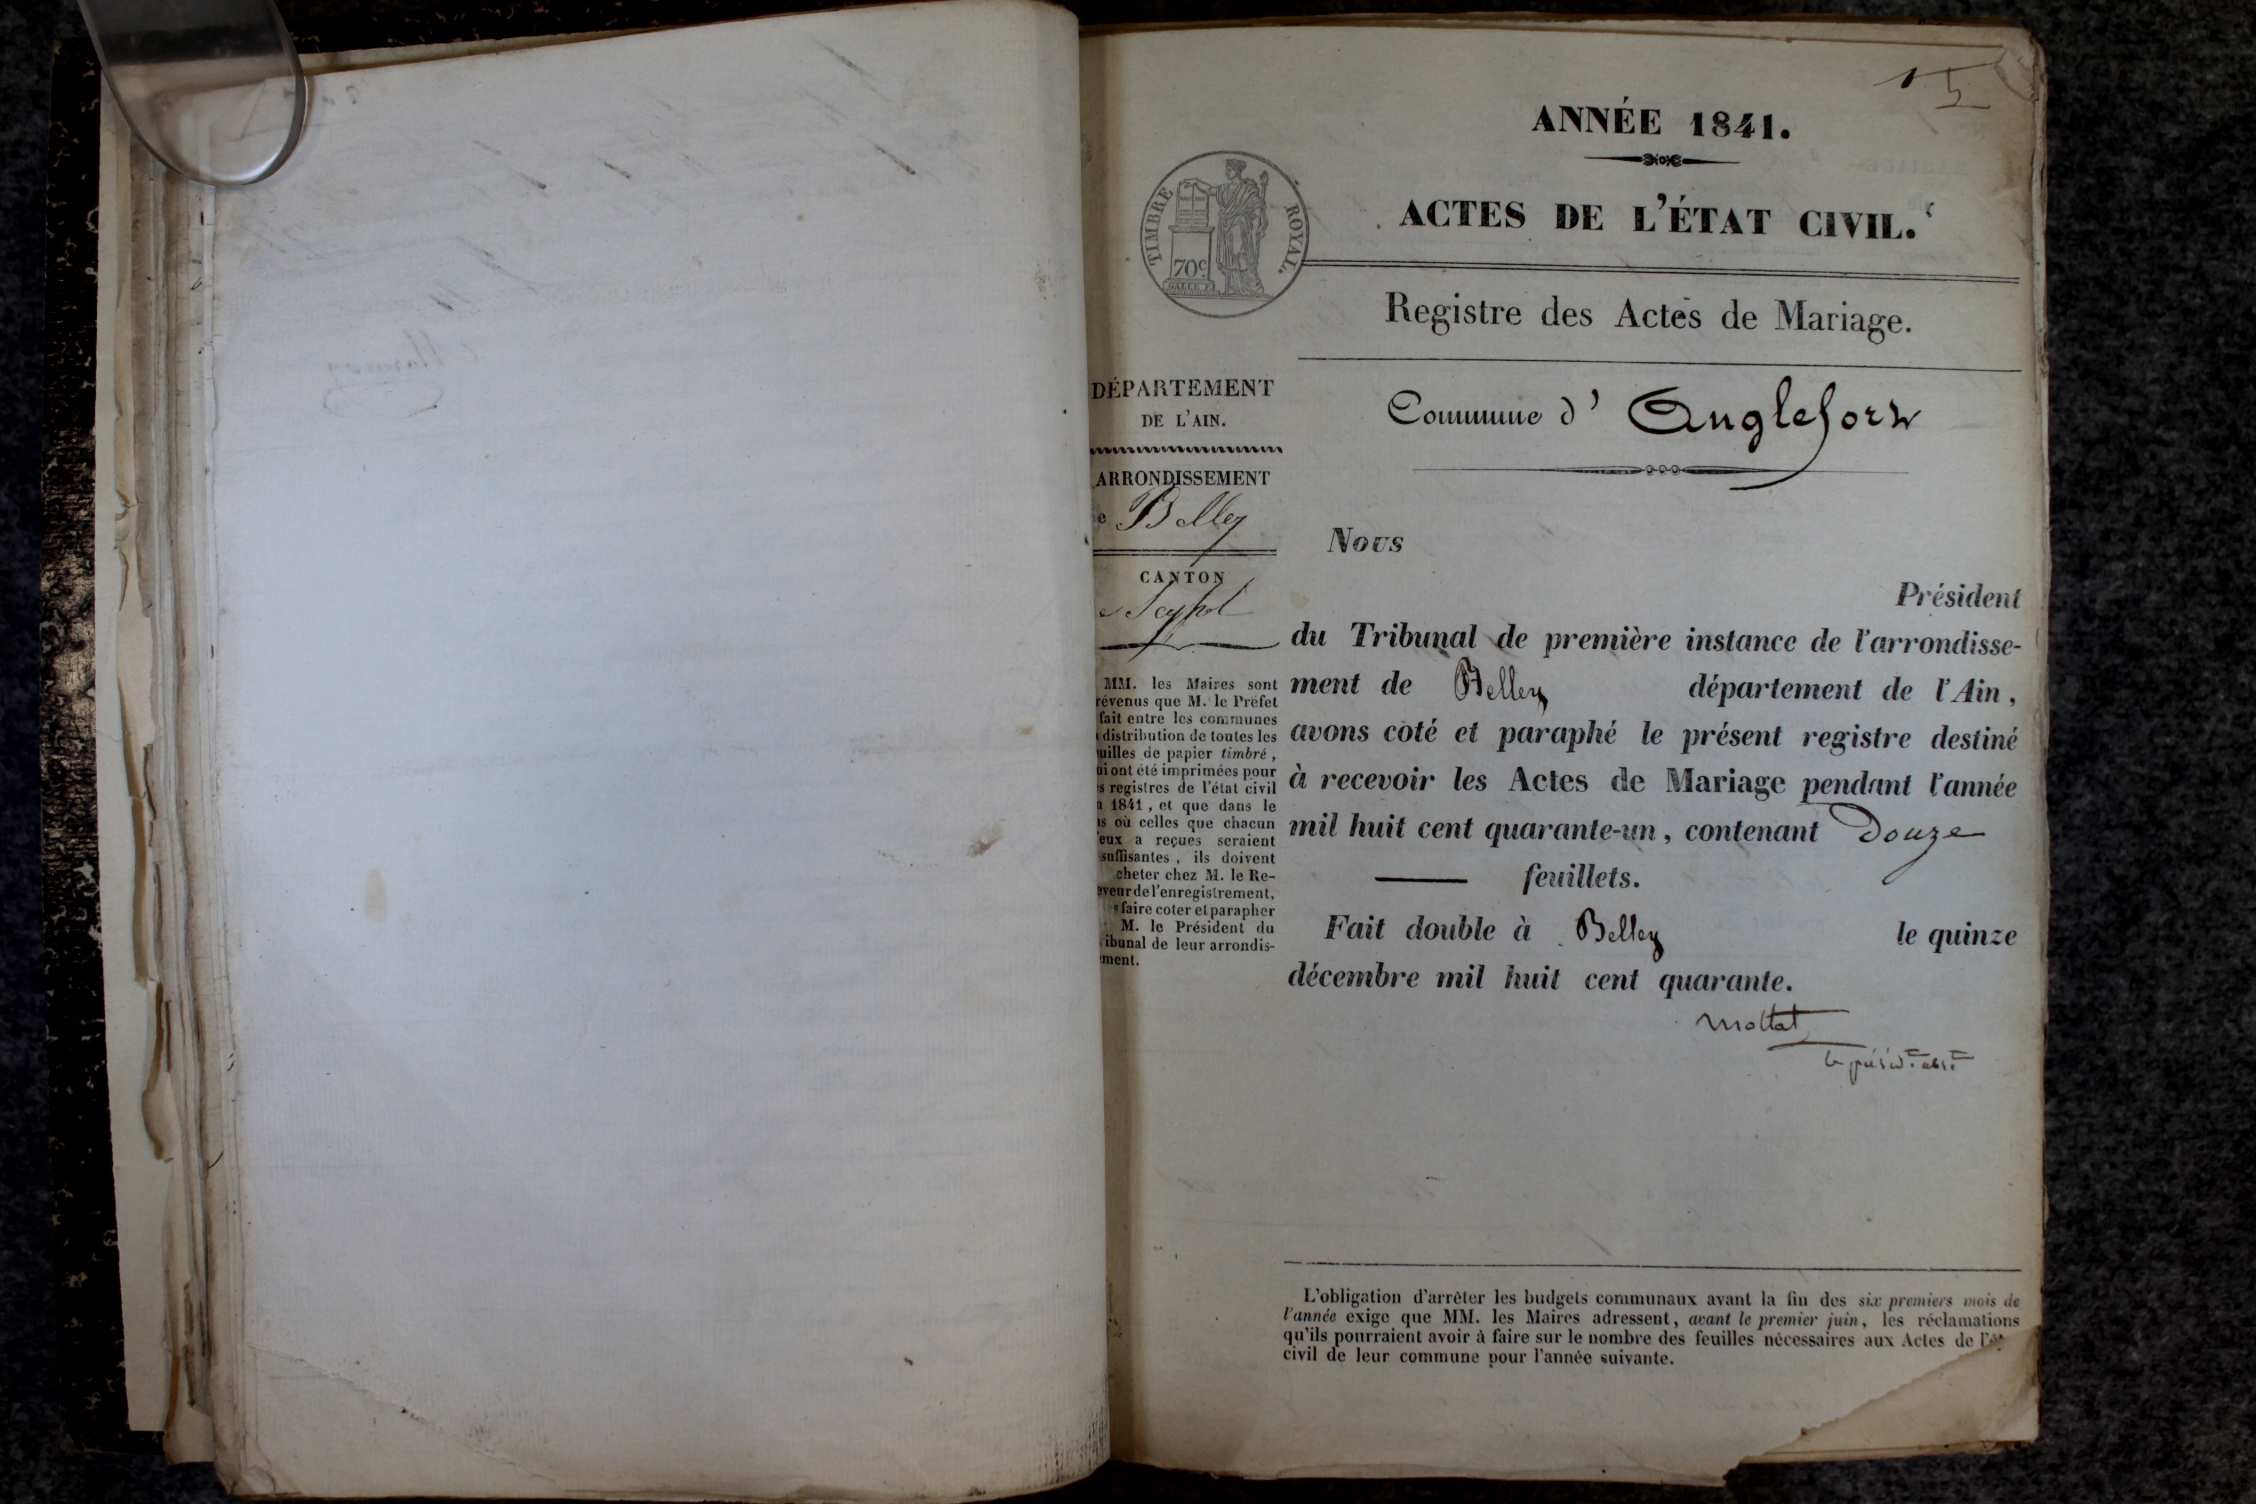 ANNÉE 1841.
ACTES DE L'ÉTAT CIVIL.
TIMBRE ROYAL.
70c
Registre des Actes de Mariage.
Commune d' Anglefort
DÉPARTEMENT
DE L'AIN.
ARRONDISSEMENT
e Belley
CANTON
e Seyssel
MM. les Maires sont
révenus que M. le Préfet
fait entre les communes
distribution de toutes les
uilles de papier timbré,
ui ont été imprimées pour
s registres de l'état civil
1841, et que dans le
as où celles que chacun
'eux a reçues seraient
suffisantes, ils doivent
cheter chez M. le Re-
eveur de l'enregistrement,
faire coter et parapher
M. le Président du
ibunal de leur arrondis-
ement.
Nous
Président
du Tribunal de première instance de l'arrondisse-
ment de Belley département de l'Ain,
avons coté et paraphé le présent registre destiné
à recevoir les Actes de Mariage pendant l'année
mil huit cent quarante-un, contenant Douze
feuillets.
Fait double à Belley le quinze
décembre mil huit cent quarante.
Mottat
L'obligation d'arrêter les budgets communaux avant la fin des six premiers mois de
l'année exige que MM. les Maires adressent, avant le premier juin, les réclamations
qu'ils pourraient avoir à faire sur le nombre des feuilles nécessaires aux Actes de l'ét
civil de leur commune pour l'année suivante.